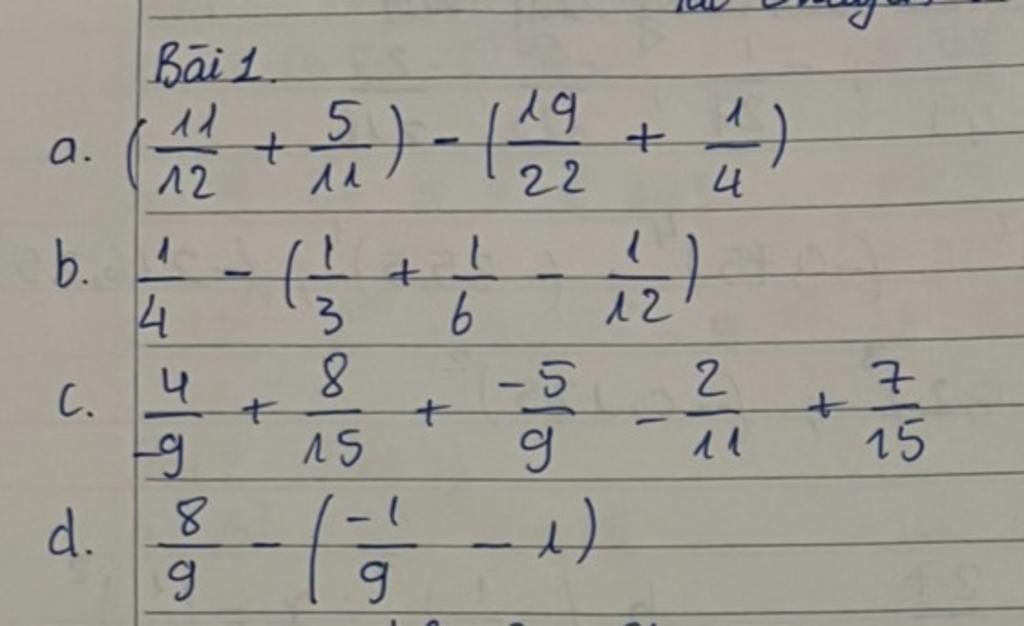 Bài 1.
a. (11/12 + 5/11) - (19/22 + 1/4)
b. 1/4 - (1/3 + 1/6 - 1/12)
c. 4/-9 + 8/15 + -5/9 - 2/11 + 7/15
d. 8/9 - (-1/9 - 1)